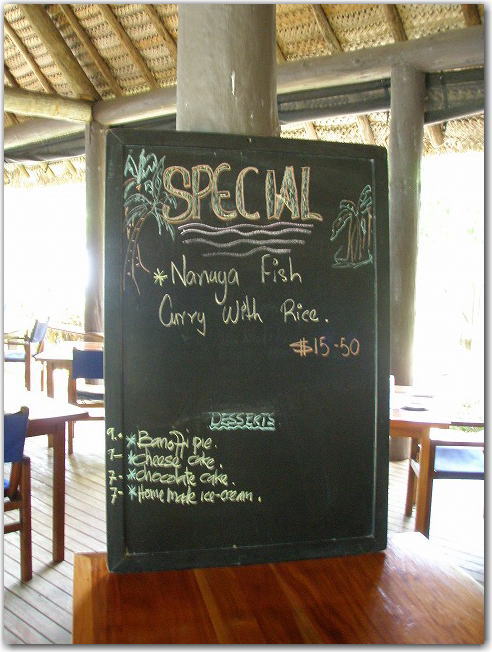 SPECIAL
*Nanuya Fish
Curry With Rice.
$15-50
DESSERTS
9.- *Banoffi pie.
7- *Cheese cake.
7- *chocolate cake.
7- *Home Made ice-cream.